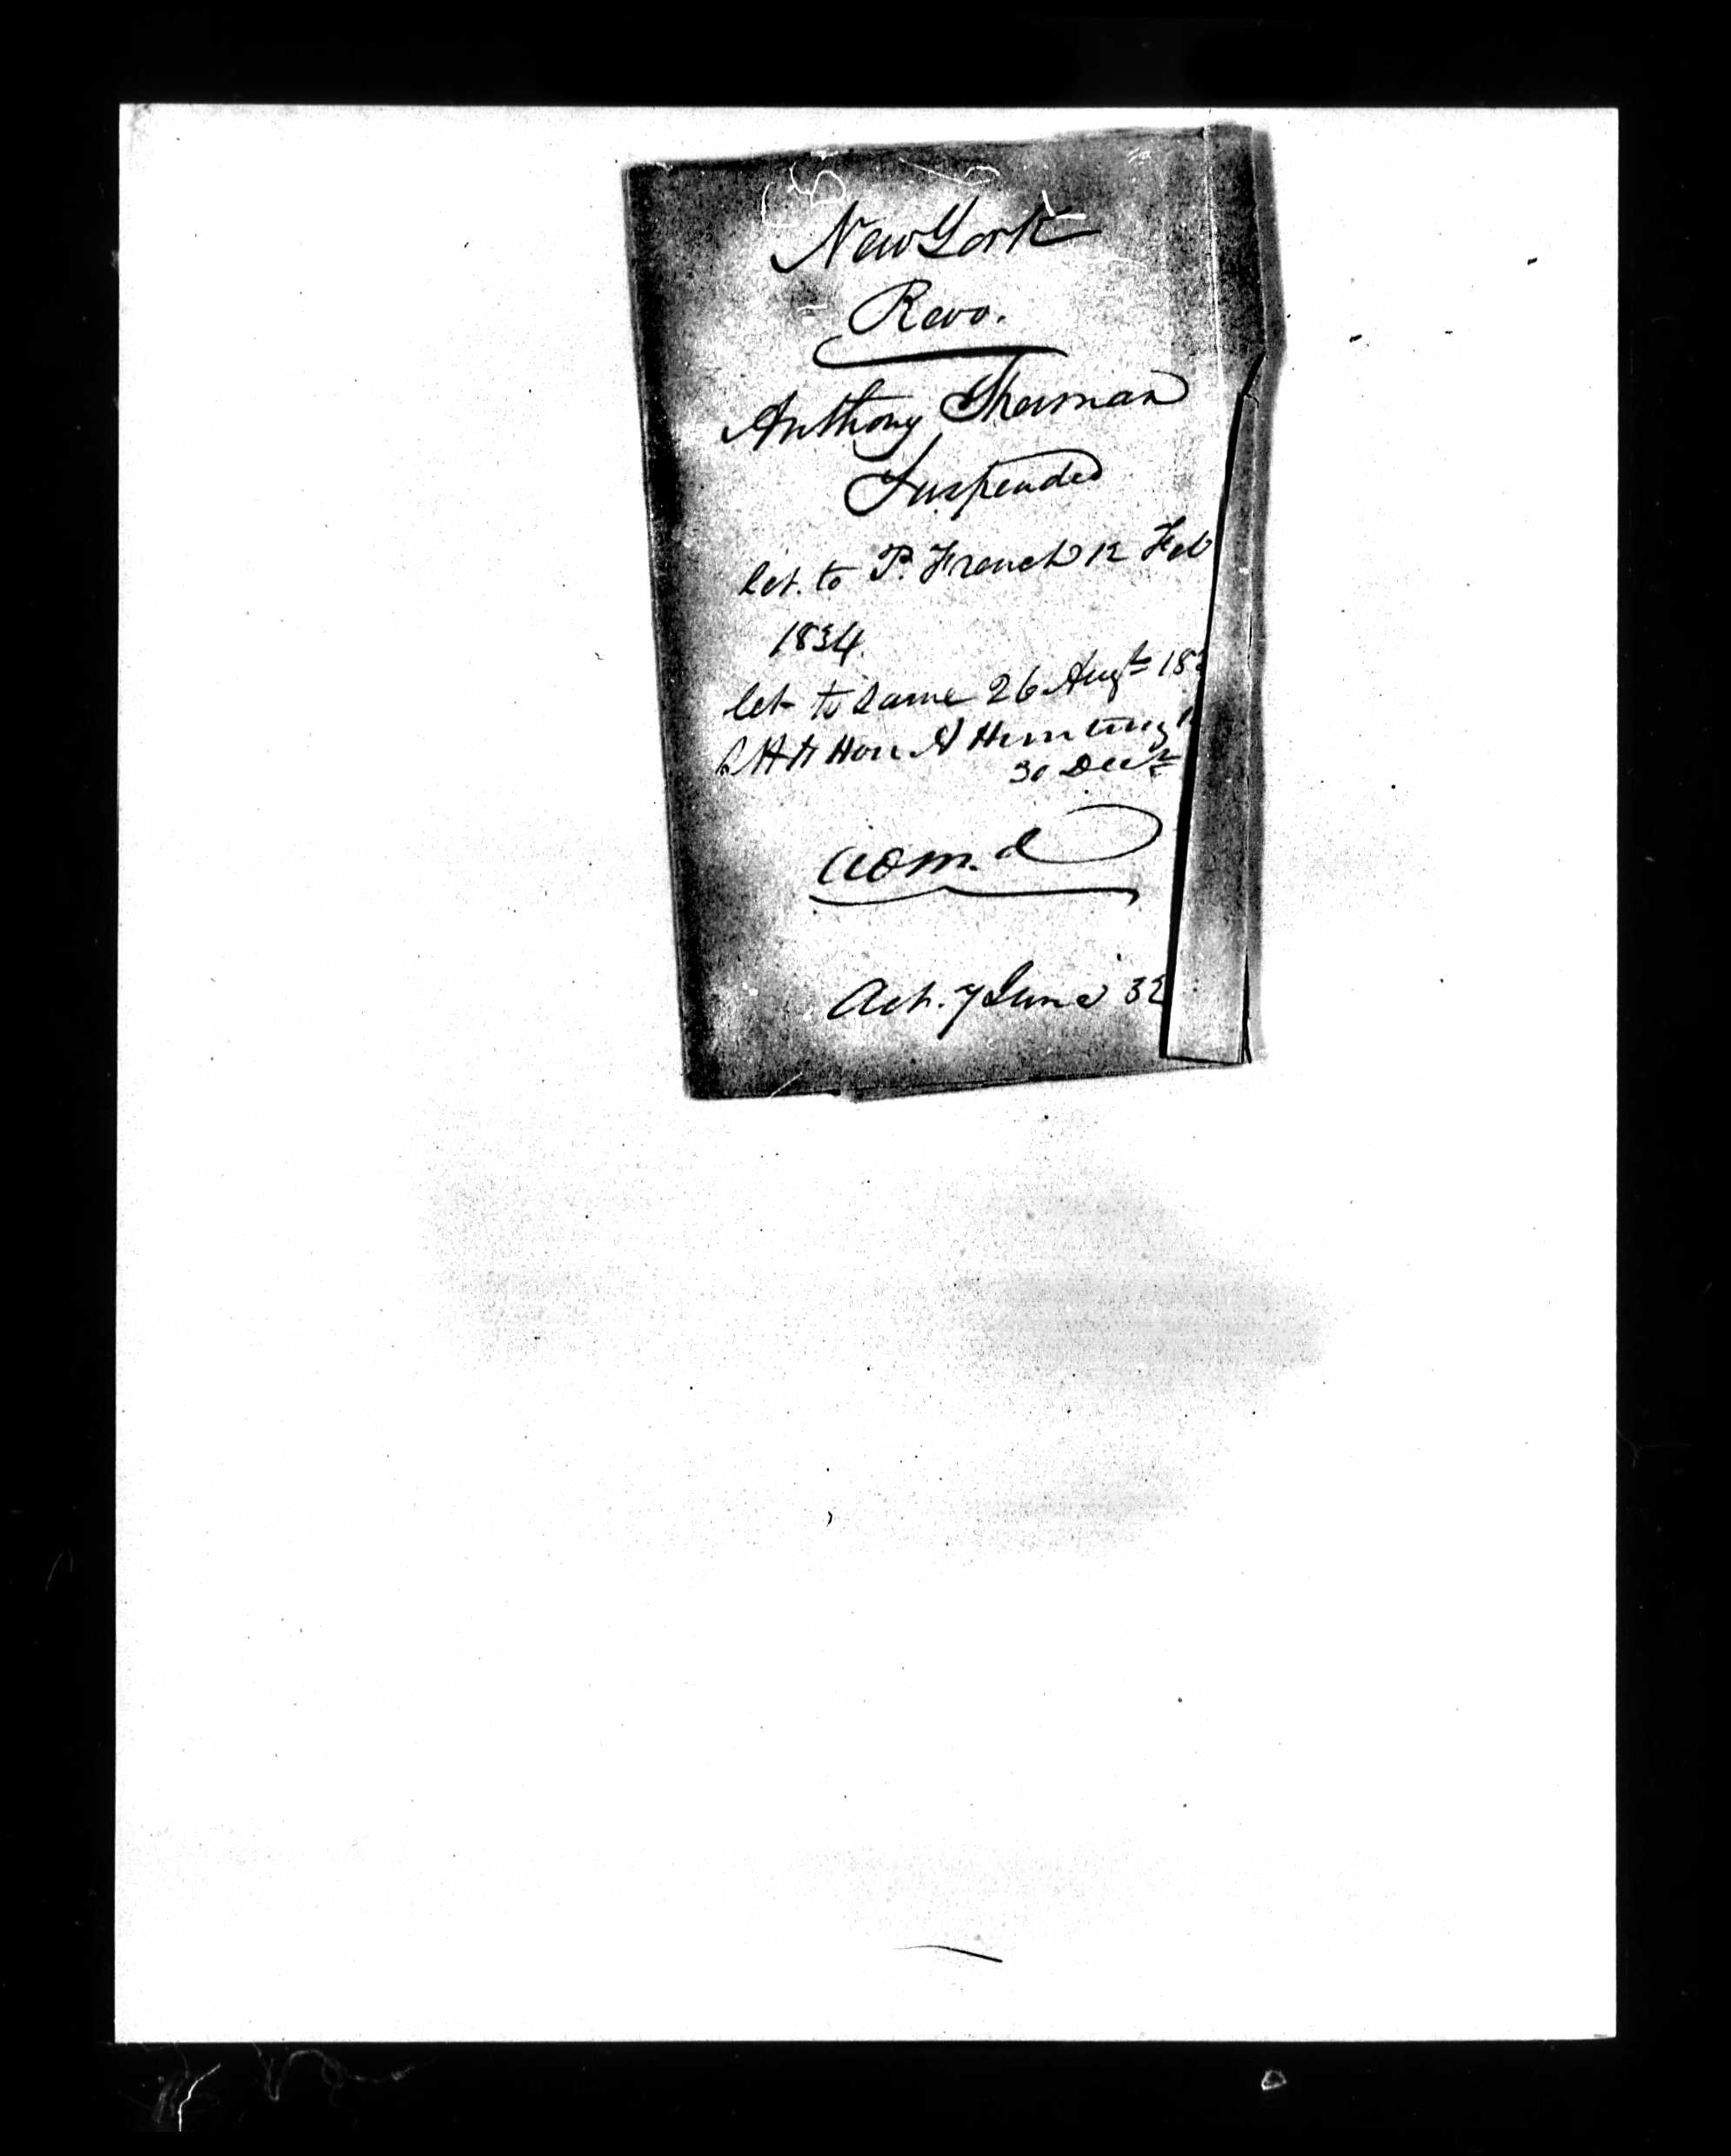 New York
Revo.
Anthony Sherman
Suspended
let. to P. French 12 Feb
1834.
let to same 26 Augt 183
Hon A Hunting
30 Decr
Act. 7 June 32